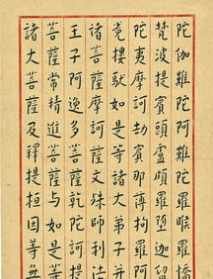 陀伽難陀阿難陀羅睺羅憍
梵波提賓頭盧頗羅墮迦留
陀夷摩訶劫賓那薄拘羅阿
㝹樓馱如是等諸大弟子并
諸菩薩摩訶薩文殊師利法
王子阿逸多菩薩乾陀訶提
菩薩常精進菩薩與如是等
諸大菩薩及釋提桓因等無